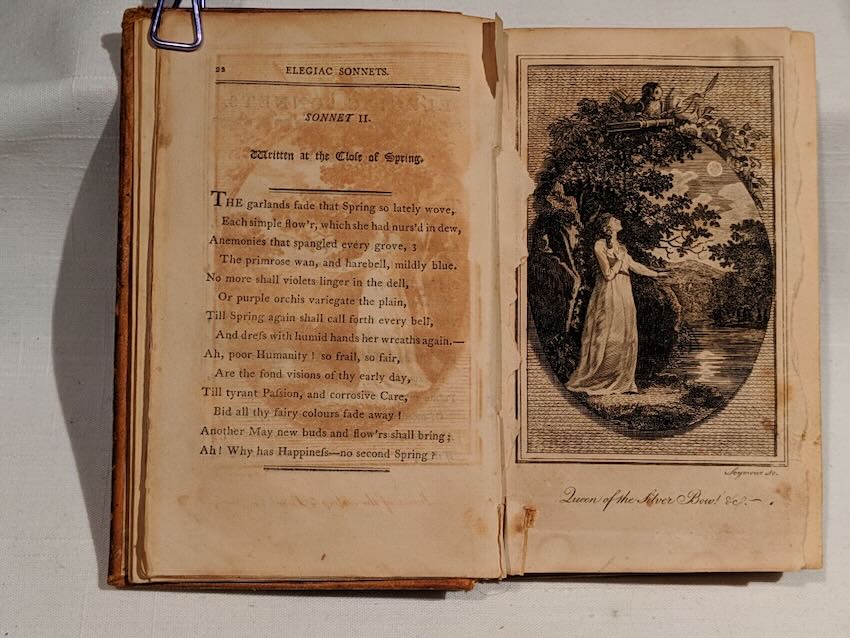 28
ELEGIAC SONNETS.
SONNET II.
Written at the Cloſe of Spring.
THE garlands fade that Spring so lately wove,
Each simple flow'r, which she had nurs'd in dew,
Anemonies that spangled every grove, 3
The primrose wan, and harebell, mildly blue.
No more shall violets linger in the dell,
Or purple orchis variegate the plain,
Till Spring again shall call forth every bell,
And dreſs with humid hands her wreaths again.—
Ah, poor Humanity ! so frail, so fair,
Are the fond visions of thy early day,
Till tyrant Paſsion, and corrosive Care,
Bid all thy fairy colours fade away !
Another May new buds and flow'rs shall bring;
Ah! Why has Happineſs—no second Spring ?
Seymour Sc.
Queen of the Silver Bow! &c.—.